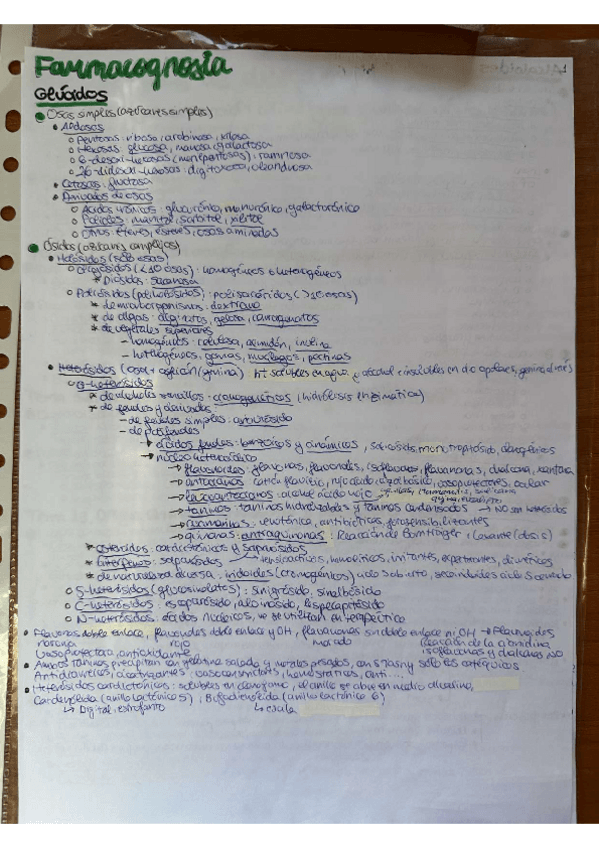 Farmacognosia
Glúcidos
Osas simples (azúcares simples)
Aldosas
Pentosas: ribosa, arabinosa, xilosa
Hexosas: glucosa, manosa, galactosa
6-desoxi-hexosas (metilpentosas): ramnosa
2,6-didesoxi-hexosas: digitoxosa, oleandrosa
Cetosas: fructosa
Derivados de osas
Ácidos urónicos: glucurónico, manurónico, galacturónico
Polioles: manitol, sorbitol, xilitol
Otros: éteres, ésteres, osas aminadas
Ósidos (azúcares complejos)
Holósidos (sólo osas)
Oligósidos (<10 osas): homogéneos o heterogéneos
Diósidos: sacarosa
Poliósidos (poliholósidos): polisacáridos (>10 osas)
de microorganismos: dextrano
de algas: alginatos, gelosa, carragenatos
de vegetales superiores
- homogéneos: celulosa, almidón, inulina
- heterogéneos: gomas, mucílagos, pectinas
Heterósidos (osa + aglicón/genina) ht solubles en agua y alcohol e insolubles en d.o apolares, genina al revés
O-heterósidos
de alcoholes sencillos: cianogenéticos (hidrólisis enzimática)
de fenoles y derivados
- de fenoles simples: arbutósido
- de polifenoles
ácidos fenoles: benzoicos y cinámicos, salicósido, monotropitósido,
núcleo heterocíclico
flavonoides: flavonas, flavonoles, isoflavonas, flavanonas, chalcona, xantona
antocianos: catión flavilio, rojo ácido azul básico, vasoprotectores, ocular
proantocianos: alcohol ácido rojo
taninos: taninos hidrolizables y taninos condensados → NO son heterósidos
cumarinas: venotónica, antibióticas, fotosensibilizantes
quinonas: antraquinonas: Reacción de Bornträger: Laxante (dosis)
esteroides: cardiotónicos y saponósidos
terpenos: saponósidos → tensioactivos, hemolíticos, irritantes, expectorantes, diuréticos
de naturaleza diversa: iridoides (cromogénicos) ciclo abierto, secoiridoides ciclo cerrado
S-heterósidos (glucosinolatos): sinigrósido, sinalbósido
C-heterósidos: escoparósido, aloinósido, hesperidósido
N-heterósidos: ácidos nucleicos, no se utilizan en terapéutica
Flavonas doble enlace, flavonoles doble enlace y OH, flavanonas sin doble enlace ni OH → Flavonoides
naranja rojo morado Reacción de la cianidina
Vasoprotectora, antioxidante isoflavonas y chalconas NO
Ambos taninos precipitan con gelatina salada y metales pesados, con Stiasny sólo los catéquicos
Antidiarreicos, cicatrizantes, vasoconstrictores, hemostáticos, anti...
Heterósidos cardiotónicos: solubles en cloroformo, el anillo se abre en medio alcalino,
Cardenólido (anillo lactónico 5), Bufadienólido (anillo lactónico 6)
↳ Digital, estrofanto ↳ escila